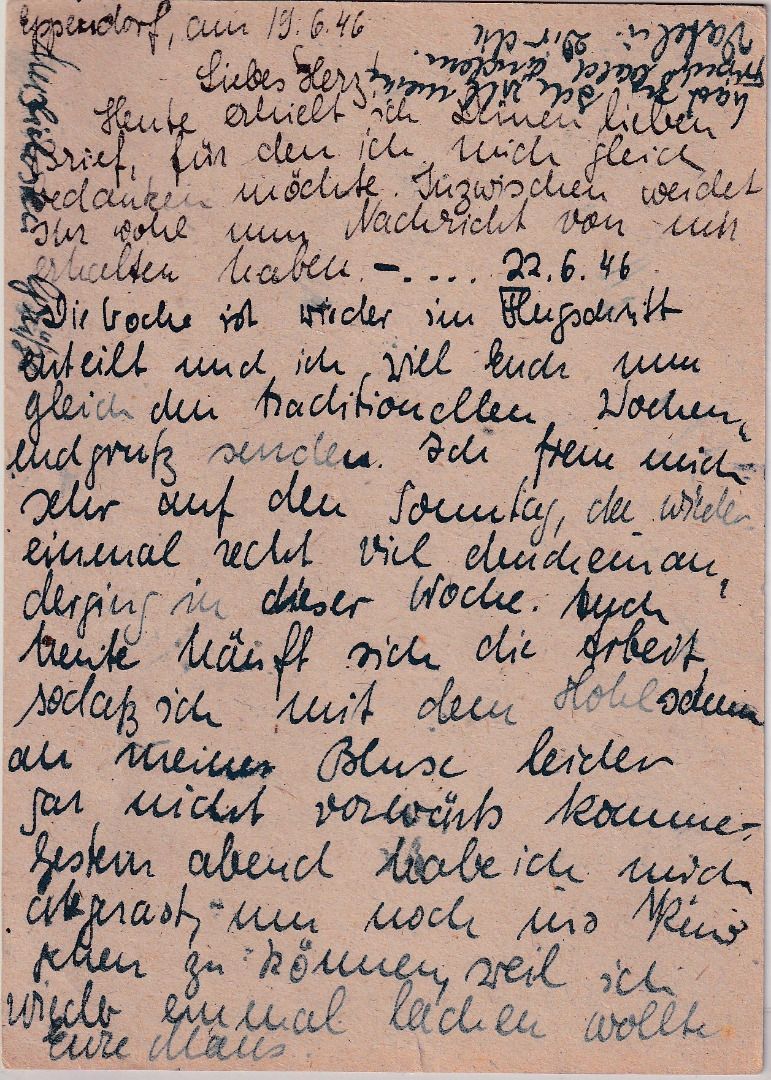 Eppendorf, am 19.6.46
Liebes Herz!
Heute erhielt ich Deinen lieben
Brief, für den ich mich gleich
bedanken möchte. Inzwischen werdet
Ihr wohl nun Nachricht von mir
erhalten haben. – .... 22.6.46
Die Woche ist wieder im Flugschritt
enteilt und ich will Euch nun
gleich den traditionellen Wochen-
endgruß senden. Ich freue mich
sehr auf den Sonntag, da wieder
einmal recht viel durcheinan-
derging in dieser Woche. Auch
heute häuft sich die Arbeit
sodaß ich mit dem Hohlsaum
an meiner Bluse leider
gar nicht vorwärts komme.
Gestern abend habe ich mich
abgerast, um noch ins Kino
gehen zu können, weil ich
wieder einmal lachen wollte
Eure Maus.
Herzlichste Grüße
Vatel u. Dir die
bald ändern.